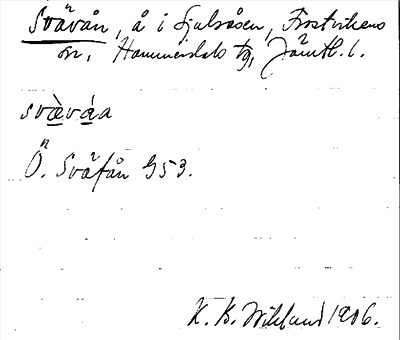 Svävån, å i Sjulsåsen, Frostvikens
sn, Hammerdals tg, Jämtl. l.
svæ̀váa
Ö. Sväfån G53.
K. B. Wiklund 1906.